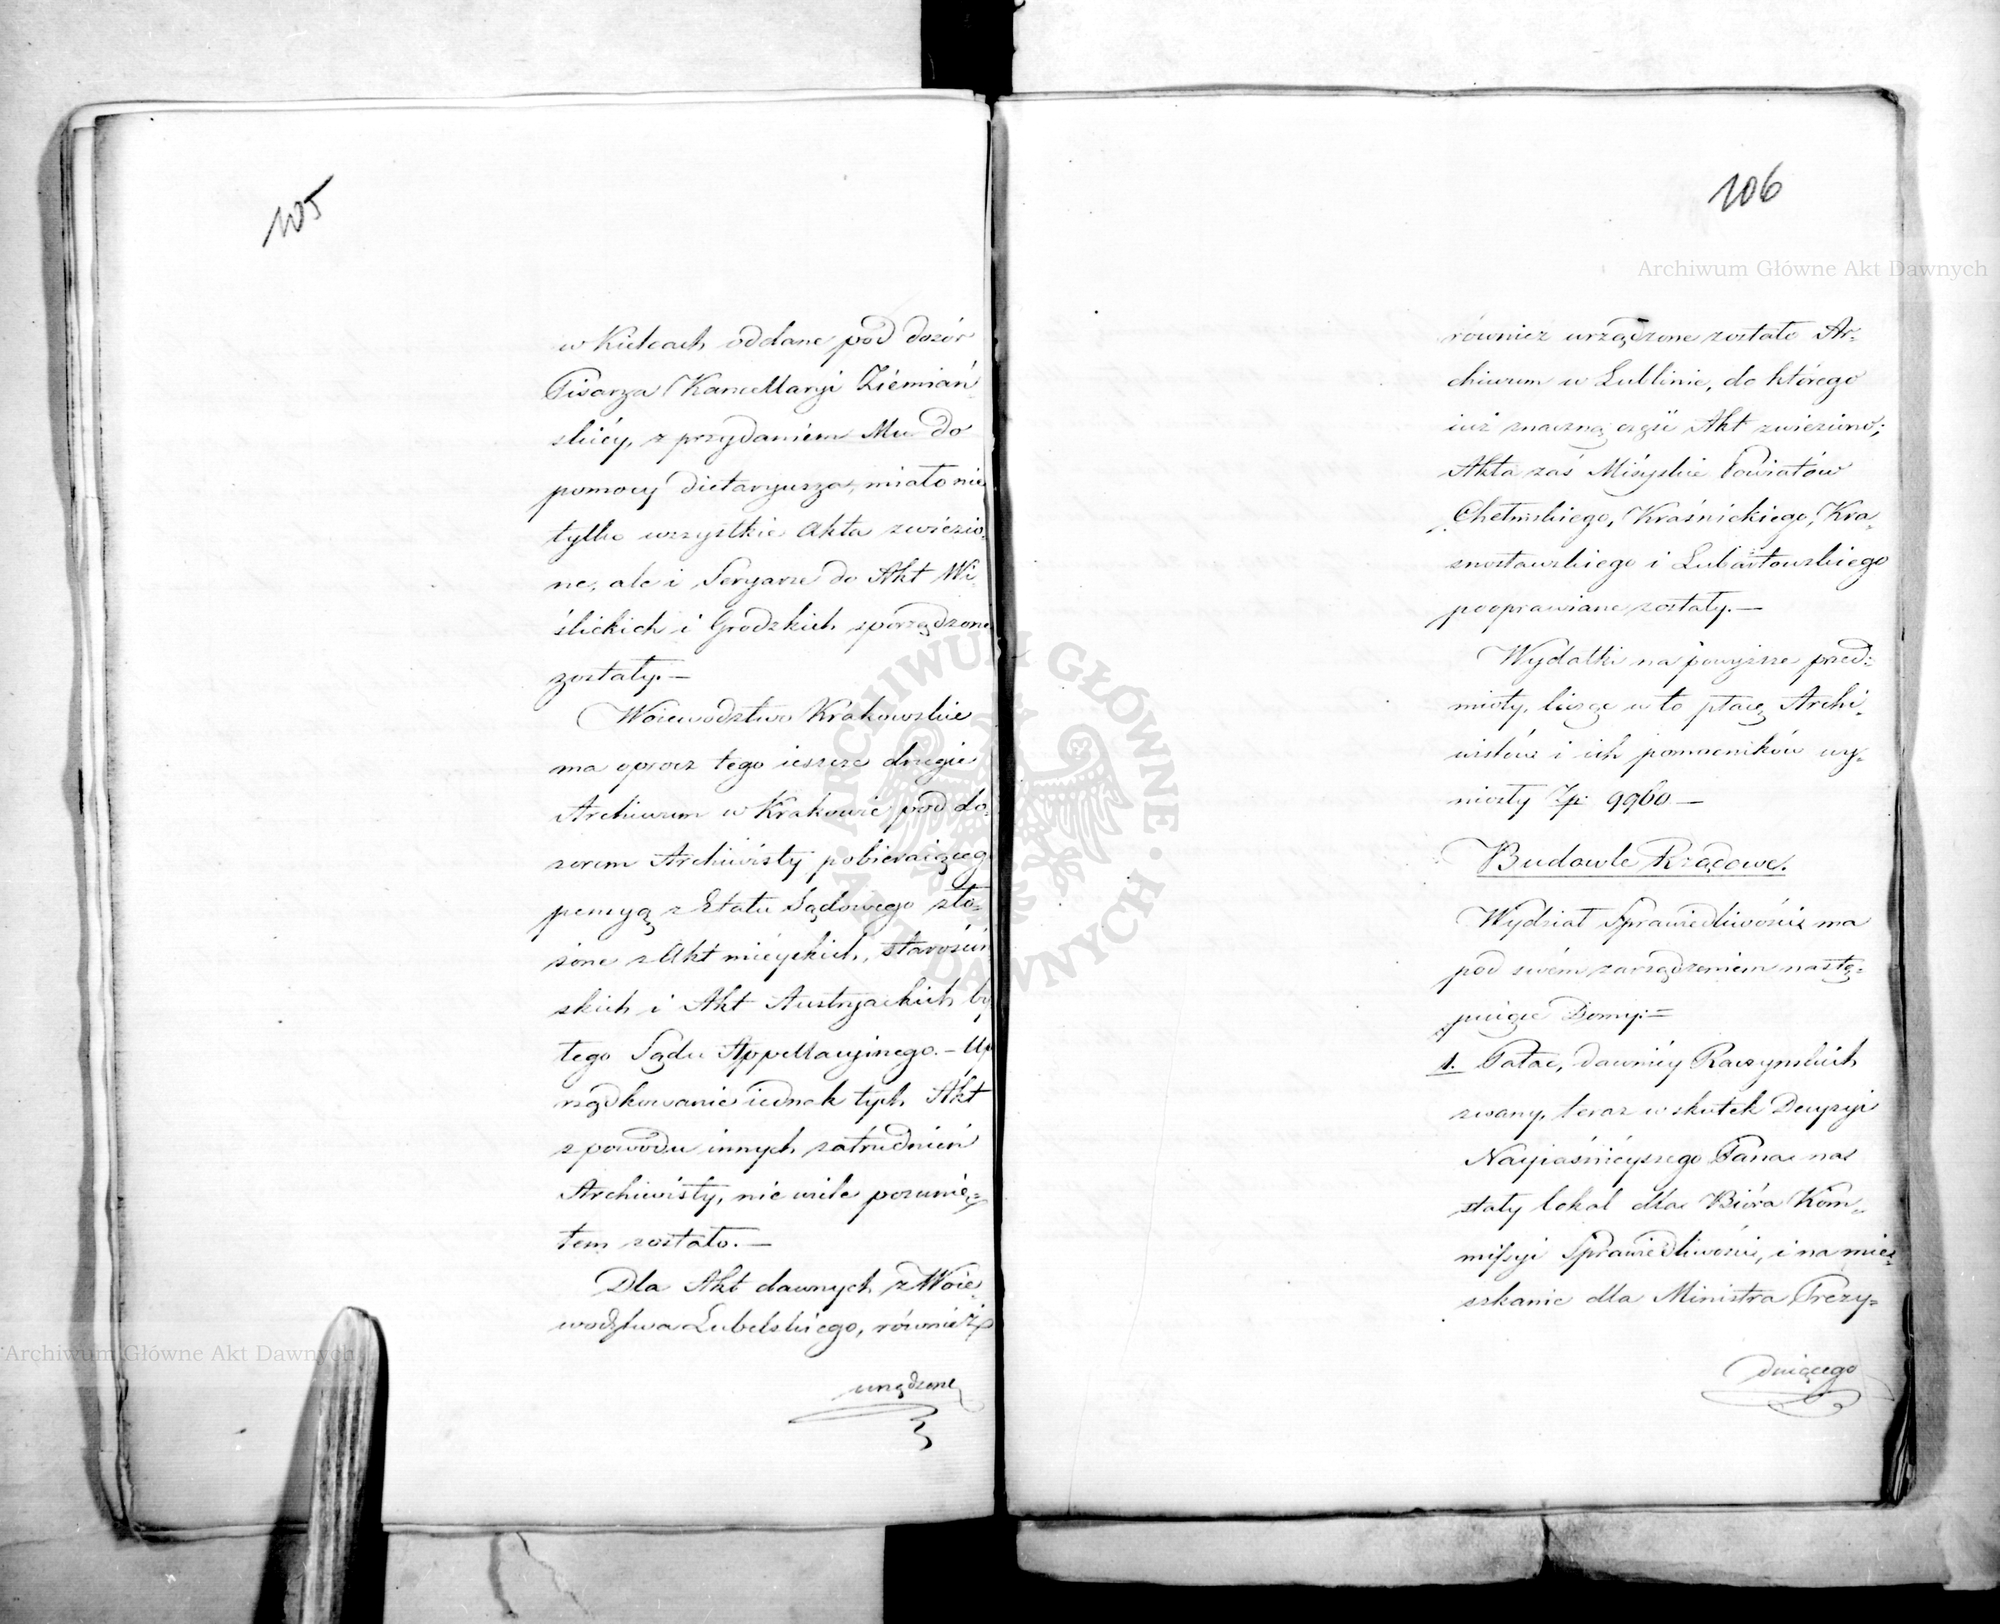 105
w Kielcach oddane pod dozór
Pisarza Kancellaryi Ziemiań-
skiéy, z przydaniem Mu do
pomocy dietaryusza, miało nie
tylko wszystkie Akta zwiezio-
ne, ale i Seryarze do Akt Wi-
ślickich i Grodzkich sporządzone
zostały.—
Woiewodztwo Krakowskie
ma oprocz tego ieszcze drugie
Archiwum w Krakowie pod do-
zorem Archiwisty pobieraiącego
pensyą z Etatu Sądowego zło-
żone z Akt mieyskich, Starościń
skich i Akt Austryackich by
tego Sądu Appellacyinego.— Upo
rządkowanie iednak tych Akt
z powodu innych zatrudnień
Archiwisty, nie wiele posunię-
tem zostało.—
Dla Akt dawnych z Woie-
wodztwa Lubelskiego, również
urządzone
106
Archiwum Główne Akt Dawnych
również urządzone zostało Ar-
chiwum w Lublinie, do którego
iuż znaczną część Akt zwieziono;
Akta zaś Mieyskie Powiatów
Chełmskiego, Kraśnickiego, Kra-
snostawskiego i Lubartowskiego
pooprawiane zostały.—
Wydatki na powyższe przed-
mioty, licząc w to płacę Archi-
wistów i ich pomocników wy-
niosły Złp: 9960.—
Budowle Rządowe.
Wydział Sprawiedliwości ma
pod swém zarządzeniem nastę-
puiące Domy:=
1. Pałac, dawniéy Raczynskich
zwany, teraz w skutek Decyzyi
Nayiaśnieyszego Pana na
stały lokal dla Biura Kom-
missyi Sprawiedliwości, i na miesz
szkanie dla Ministra Prezy-
duiącego
Archiwum Główne Akt Dawnych
ARCHIWUM GŁÓWNE AKT DAWNYCH